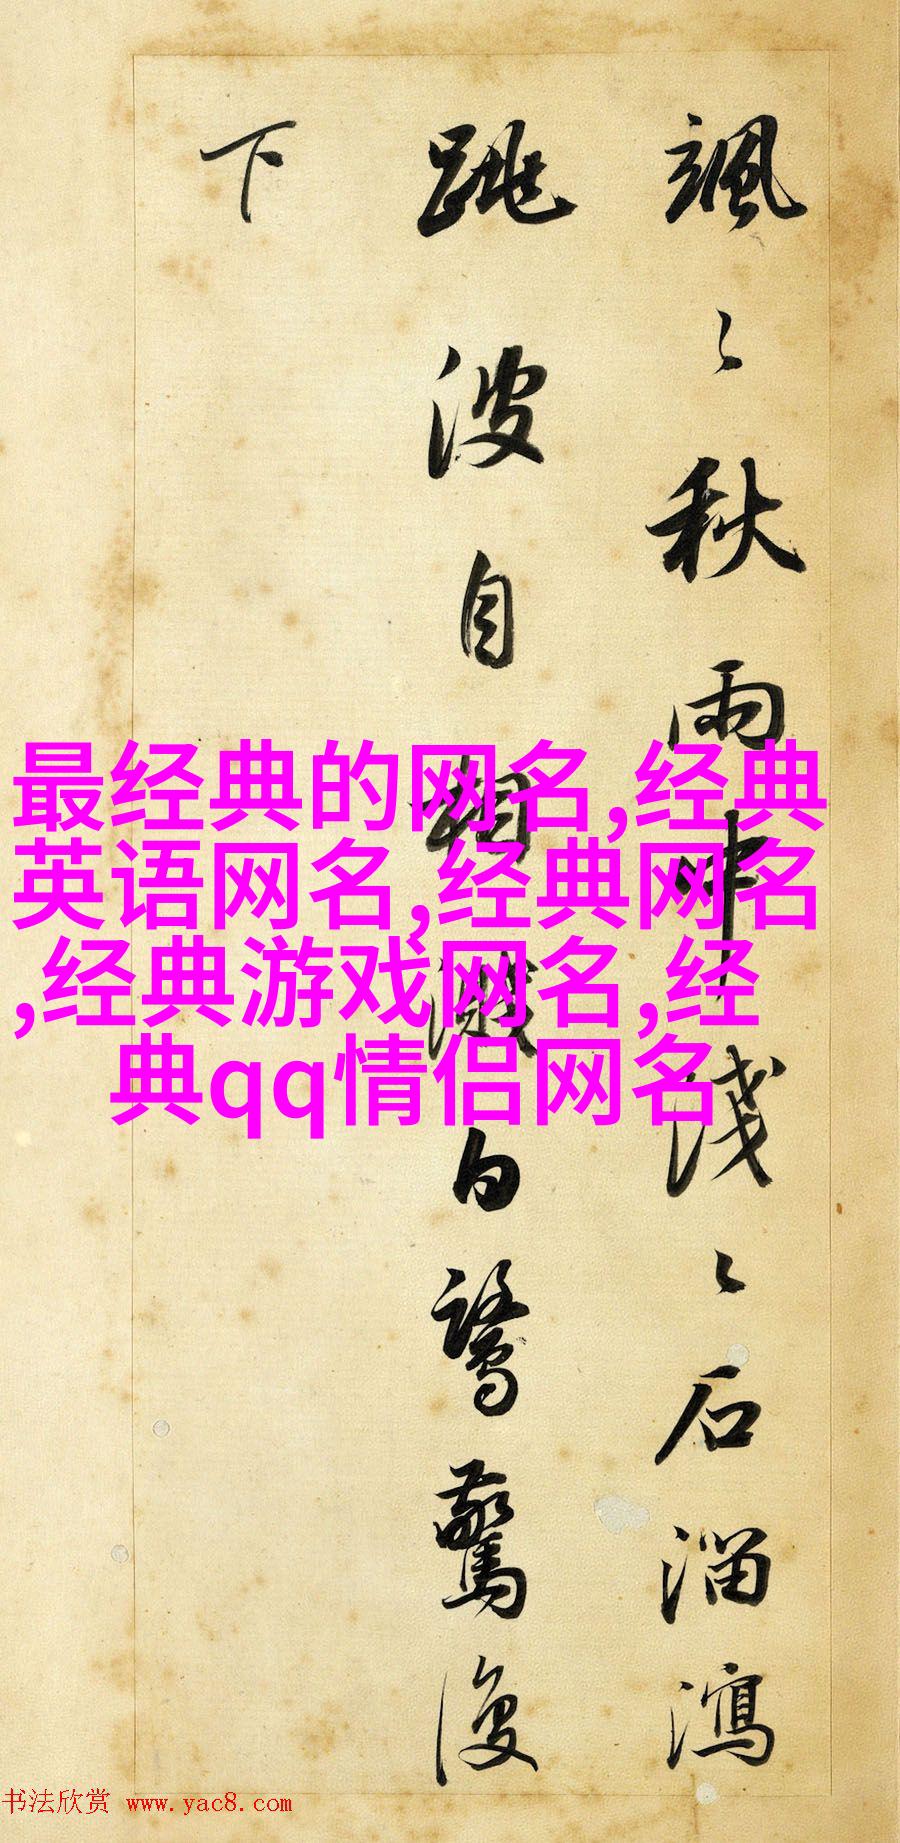 颯〻秋雨中淺〻石溜瀉
跳波自相濺白鷺驚復
下
最经典的网名,经典
英语网名,经典网名
,经典游戏网名,经
典qq情侣网名
书法欣赏 www.yac8.com